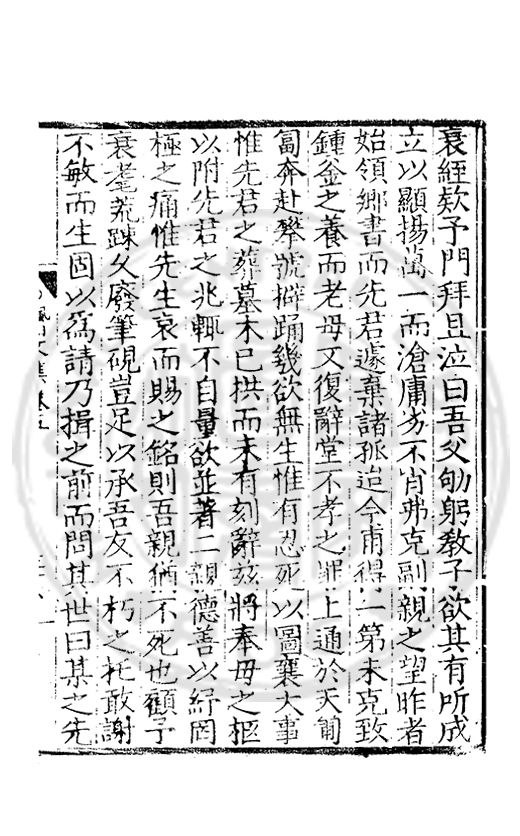 衰絰欵予門拜且泣曰吾父劬躬敎子欲其有所成
立以顯揚萬一而滄庸劣不肖弗克副親之望昨者
始領鄉書而先君遽棄諸孤迨今甫得一第未克致
鍾釜之養而老母又復辭堂不孝之罪上通於天匍
匐奔赴攀號擗踊幾欲無生惟有忍死以圖襄大事
惟先君之葬墓木已拱而未有刻辭玆將奉母之柩
以附先君之兆輒不自量欲並著二親德善以紓罔
極之痛惟先生哀而賜之銘則吾親猶不死也顧予
衰耄荒踈久廢筆硯豈足以承吾友不朽之托敢謝
不敏而生固以爲請乃揖之前而問其世曰某之先